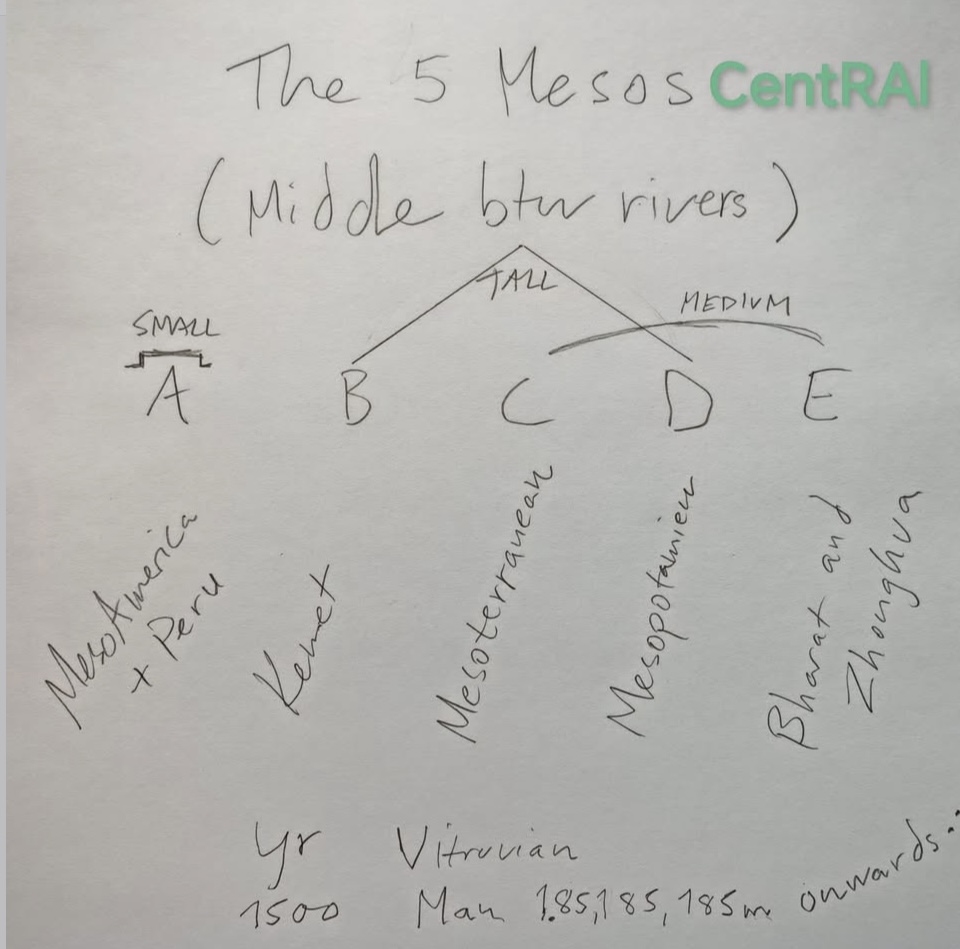 The 5 Mesos CentRAl
(Middle btw rivers)
TALL
MEDIUM
SMALL
A B C D E
MesoAmerica
+ Peru
Kemet
Mesoterranean
Mesopotamien
Bharat and
Zhonghua
Yr Vitruvian
1500 Man 1.85,185,185m onwards..